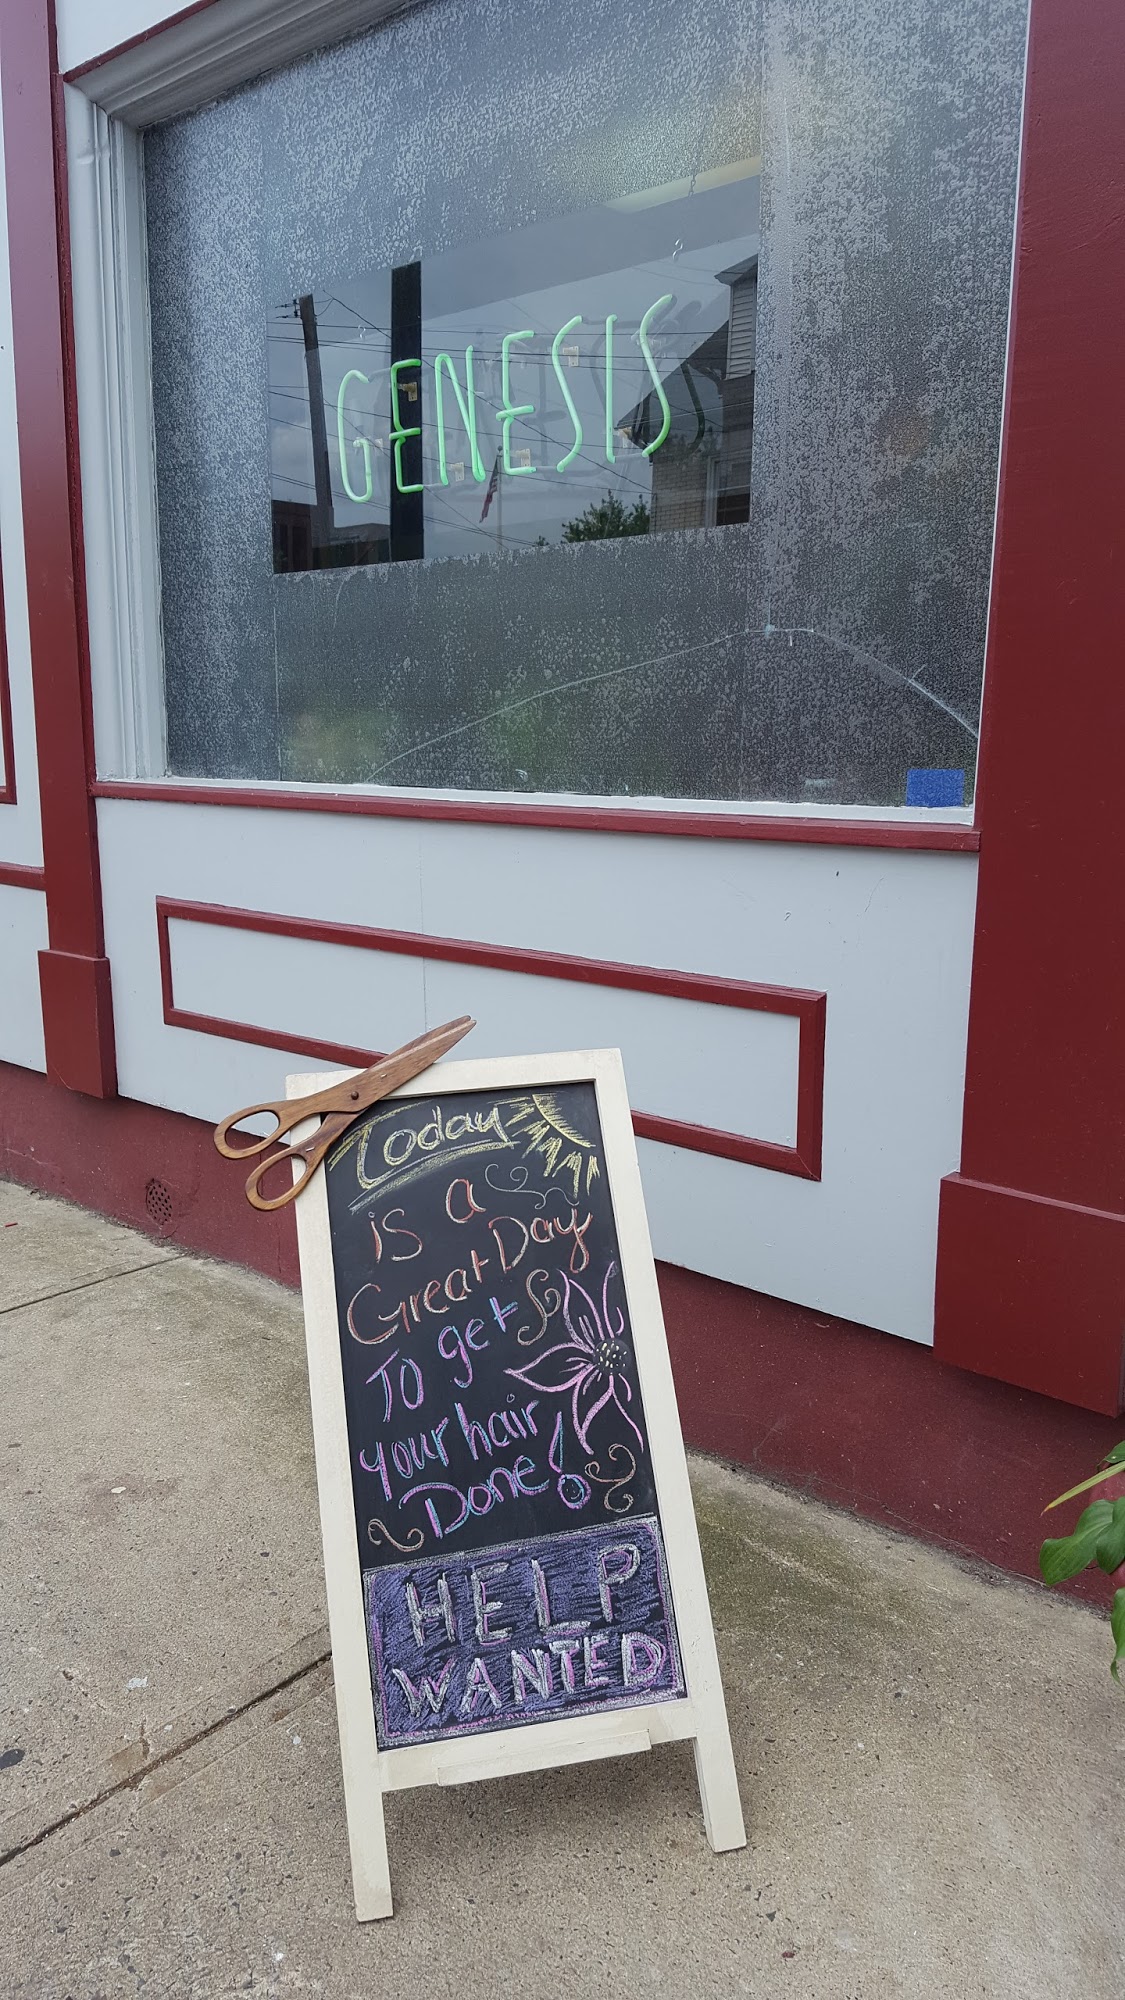 GENESIS
Today
is a
Great Day
To get
your hair
Done!
HELP
WANTED